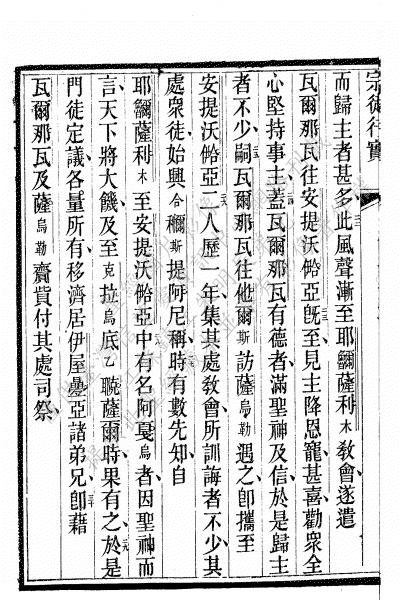 宗徒行實
而歸主者甚多此風聲漸至耶薩利木教會遂遣
瓦爾那瓦往安提沃亞旣至見主降恩寵甚喜勸衆全
心堅持事主蓋瓦爾那瓦有德者滿聖神及信於是歸主
者不少嗣瓦爾那瓦往他爾斯訪薩烏勒遇之卽攜至
安提沃亞二人歷一年集其處敎會所訓誨者不少其
處衆徒始興合穪斯提阿尼稱時有數先知自
耶薩利木至安提沃亞中有名阿戛烏者因聖神而
言天下將大饑及至克拉烏底乙薩爾時果有之於是
門徒定議各量所有移濟居伊屋疊亞諸弟兄卽藉
瓦爾那瓦及薩烏勒齎貲付其處司祭